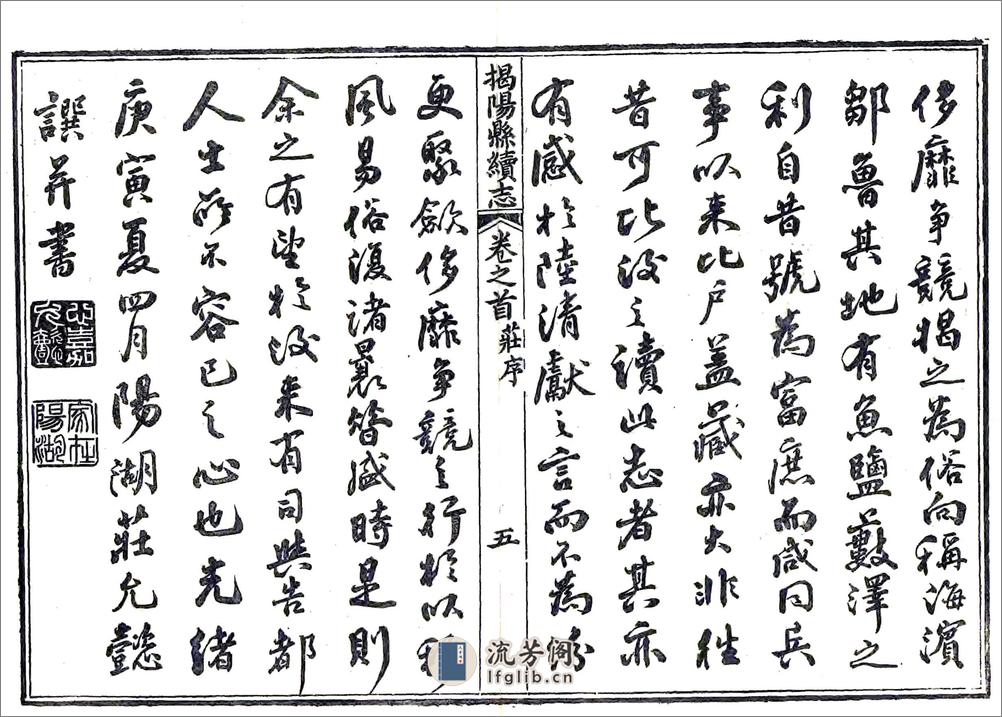 侈靡爭競揭之為俗向稱海濱
鄒魯其地有魚鹽藪澤之
利自昔號為富庶而咸同兵
事以来比户盖藏亦大非徃
昔可比後之讀此志者其亦
有感於陸清獻之言而不為紛
揭陽縣續志 卷之首 莊序 五
更聚斂侈靡爭競之行於以移
風易俗復諸曩昔盛時是則
余之有望於後来有司與吾都
人士所不容已之心也光緒
庚寅夏四月陽湖莊允懿
譔并書
家在陽湖
流芳阁
lfglib.cn